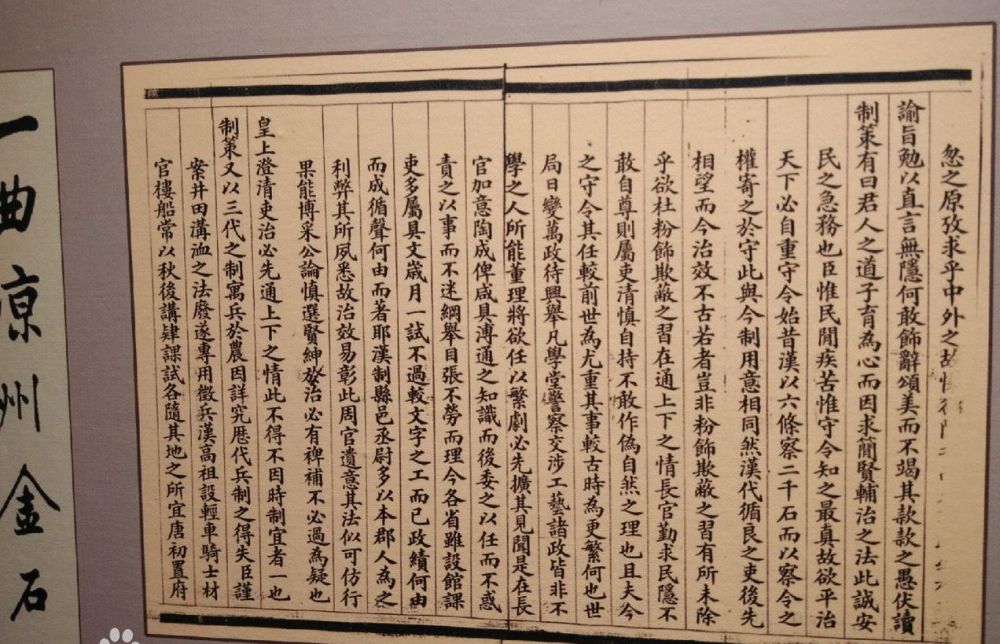 忽之原攷求乎中外之故
諭旨勉以直言無隱何敢飾辭頌美而不竭其款款之愚伏讀
制策有曰君人之道子育為心而因求簡賢輔治之法此誠安
民之急務也臣惟民間疾苦惟守令知之最真故欲平治
天下必自重守令始昔漢以六條察二千石而以察令之
權寄之於守此與今制用意相同然漢代循良之吏後先
相望而今治效不古若者豈非粉飾欺蔽之習有所未除
乎欲杜粉飾欺蔽之習在通上下之情長官勤求民隱不
敢自尊則屬吏清慎自持不敢作偽自然之理也且夫今
之守令其任較前世為尤重其事較古時為更繁何也世
局日變萬政待興舉凡學堂警察交涉工藝諸政皆非不
學之人所能董理將欲任以繁劇必先擴其見聞是在長
官加意陶成俾咸具溥通之知識而後委之以任而不惑
責之以事而不迷綱舉目張不勞而理今各省雖設館課
吏多屬具文嵗月一試不過較文字之工而已政績何由
而成循聲何由而著耶漢制縣邑丞尉多以本郡人為之
利弊其所夙悉故治效易彰此周官遺意其法似可仿行
果能博采公論慎選賢紳於治必有裨補不必過為疑也
皇上澄清吏治必先通上下之情此不得不因時制宜者一也
制策又以三代之制寓兵於農因詳究歷代兵制之得失臣謹
案井田溝洫之法廢遂專用徵兵漢高祖設輕車騎士材
官樓船常以秋後講肄課試各隨其地之所宜唐初置府
一曲京州金石